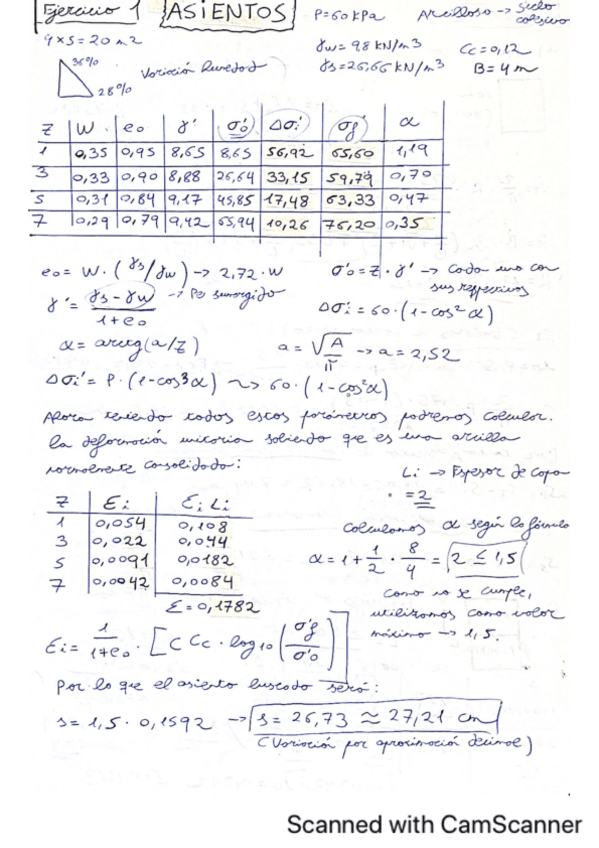 Ejercicio 1 ASIENTOS P=60 KPa Arcilloso → suelo cohesivo
4x5=20 m2 γw=9,8 KN/m3 Cc=0,12
36% Variación humedad γs=26,66 KN/m3 B=4m
28%
Z W eo γ' σ'o Δσi' σ'f α
1 0,35 0,95 8,65 8,65 56,92 65,60 1,19
3 0,33 0,90 8,88 26,64 33,15 59,79 0,70
5 0,31 0,84 9,17 45,85 17,48 63,33 0,47
7 0,29 0,79 9,42 65,94 10,26 76,20 0,35
eo = W·(γs/γw) → 2,72·W σ'o = Z·γ' → Cada uno con sus respectivos
γ' = γs-γw / 1+eo → Pe sumergido Δσi = 60·(1-cos² α)
α = arctg(a/Z) a = √A/π → a = 2,52
Δσi' = P·(1-cos³α) ~> 60·(1-cos²α)
Ahora teniendo todos estos parámetros podremos calcular.
la deformación unitaria sabiendo que es una arcilla
normalmente consolidada: Li → Espesor de capa
Z Ei Ei Li = 2
1 0,054 0,108 Calculamos α según la fórmula
3 0,022 0,044
5 0,0091 0,0182 α = 1 + 1/2 · 8/4 = 2 ≤ 1,5
7 0,0042 0,0084 como no se cumple,
Ɛ = 0,1782 utilizamos como valor
máximo → 1,5.
Ei = 1/1+eo · [C Cc · log10 (σ'f/σ'o)]
Por lo que el asiento buscado será:
s = 1,5 · 0,1592 → s = 26,73 ≈ 27,21 cm
(Variación por aproximación decimal)
Scanned with CamScanner